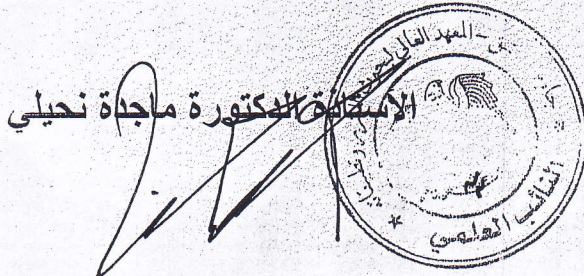 الأستاذة الدكتورة ماجدة نحيلي
المعهد العالي
النائب العلمي